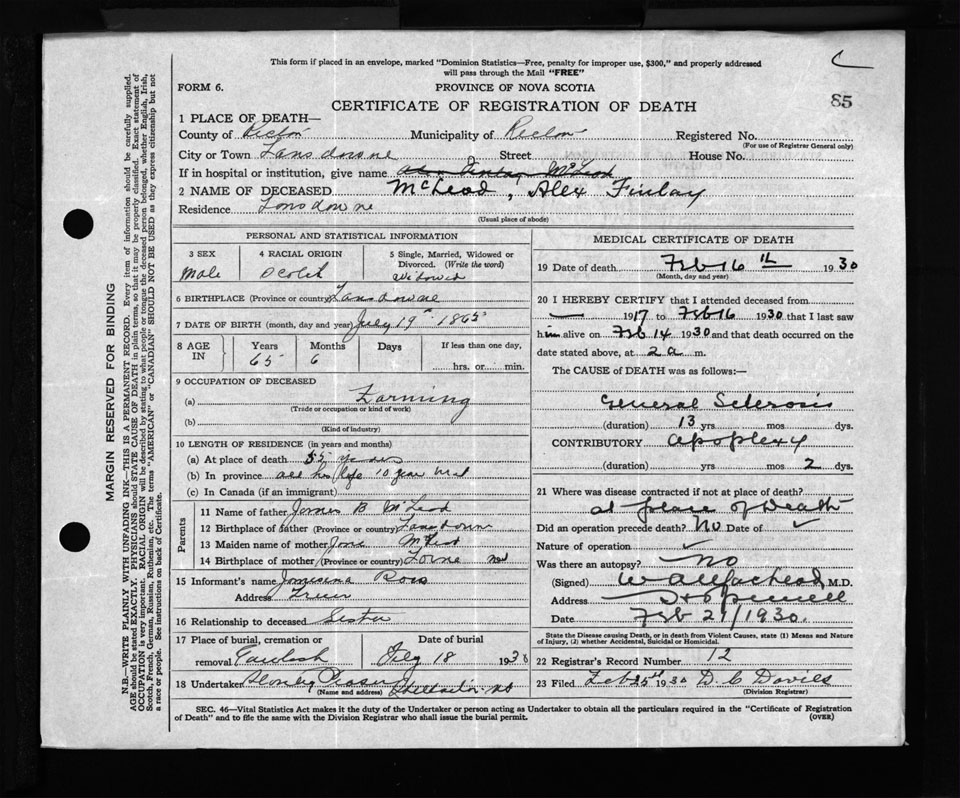 This form if placed in an envelope, marked "Dominion Statistics—Free, penalty for improper use, $300," and properly addressed
will pass through the Mail "FREE"
FORM 6.
PROVINCE OF NOVA SCOTIA
CERTIFICATE OF REGISTRATION OF DEATH
85
1 PLACE OF DEATH—
County of Pictou Municipality of Pictou Registered No.
(For use of Registrar General only)
City or Town Lansdowne Street House No.
If in hospital or institution, give name
2 NAME OF DECEASED McLeod, Alex Finlay
Residence Lansdowne
(Usual place of abode)
PERSONAL AND STATISTICAL INFORMATION
3 SEX
Male
4 RACIAL ORIGIN
Scotch
5 Single, Married, Widowed or Divorced. (Write the word)
Widowed
6 BIRTHPLACE (Province or country) Lansdowne
7 DATE OF BIRTH (month, day and year) July 19th 1865
8 AGE IN
Years 65
Months 6
Days
If less than one day,
hrs. or min.
9 OCCUPATION OF DECEASED
(a) Farming
(Trade or occupation or kind of work)
(b)
(Kind of industry)
10 LENGTH OF RESIDENCE (in years and months)
(a) At place of death 55 years
(b) In province all his life 10 year
(c) In Canada (if an immigrant)
Parents
11 Name of father James B McLeod
12 Birthplace of father (Province or country) Lansdown
13 Maiden name of mother Jane McLeod
14 Birthplace of mother (Province or country) Lorne
15 Informant's name Ross
Address
16 Relationship to deceased Sister
17 Place of burial, cremation or removal
Date of burial
18 193
18 Undertaker
(Name and address)
MEDICAL CERTIFICATE OF DEATH
19 Date of death Feb 16th 1930
(Month, day and year)
20 I HEREBY CERTIFY that I attended deceased from
— 1917 to Feb 16 1930 that I last saw
him alive on Feb 14 1930 and that death occurred on the
date stated above, at 2 a m.
The CAUSE of DEATH was as follows:—
General Sclerosis
(duration) 13 yrs mos dys.
CONTRIBUTORY apoplexy
(duration) yrs mos 2 dys.
21 Where was disease contracted if not at place of death?
at place of Death
Did an operation precede death? No Date of ✓
Nature of operation ✓
Was there an autopsy? No
(Signed) M.D.
Address Hopewell
Date Feb 21/1930.
State the Disease causing Death, or in death from Violent Causes, state (1) Means and Nature
of Injury, (2) whether Accidental, Suicidal or Homicidal.
22 Registrar's Record Number 12
23 Filed Feb 25th 1930 D. C Davies
(Division Registrar)
SEC. 46—Vital Statistics Act makes it the duty of the Undertaker or person acting as Undertaker to obtain all the particulars required in the "Certificate of Registration
of Death" and to file the same with the Division Registrar who shall issue the burial permit.
(OVER)
MARGIN RESERVED FOR BINDING
N.B.—WRITE PLAINLY WITH UNFADING INK—THIS IS A PERMANENT RECORD. Every item of information should be carefully supplied.
AGE should be stated EXACTLY. PHYSICIANS should STATE CAUSE OF DEATH in plain terms, so that it may be properly classified. Exact statement of
OCCUPATION is very important. RACIAL ORIGIN will be described by stating to what people or tongue the deceased person belonged, whether English, Irish,
Scotch, French, German, Russian, Ruthenian, etc. The terms "AMERICAN" or "CANADIAN" SHOULD NOT BE USED as they express citizenship but not
a race or people. See instructions on back of Certificate.